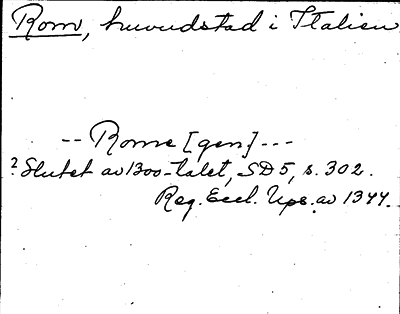 Rom, huvudstad i Italien
-- Rome [gen] ---
? Slutet av 1300-talet, SD 5, s. 302.
Reg. Eccl. Ups. av 1344.